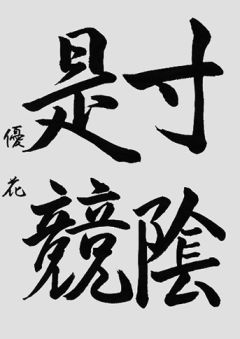 寸陰
是競
優花